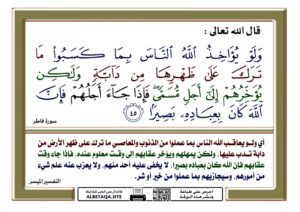 قال الله تعالى :
وَلَوْ يُؤَاخِذُ ٱللَّهُ ٱلنَّاسَ بِمَا كَسَبُوا۟ مَا
تَرَكَ عَلَىٰ ظَهْرِهَا مِن دَآبَّةٍ وَلَٰكِن
يُؤَخِّرُهُمْ إِلَىٰٓ أَجَلٍ مُّسَمًّى فَإِذَا جَآءَ أَجَلُهُمْ فَإِنَّ
ٱللَّهَ كَانَ بِعِبَادِهِۦ بَصِيرًۢا ٤٥
سورة فاطر
أي ولو يعاقب الله الناس بما عملوا من الذنوب والمعاصي ما ترك على ظهر الأرض من
دابة تدب عليها. ولكن يمهلهم ويؤخر عقابهم إلى وقت معلوم عنده. فإذا جاء وقت
عقابهم فإن الله كان بعباده بصيرا. لا يخفى عليه أحد منهم. ولا يعزب عنه علم شيء
من أمورهم. وسيجازيهم بما عملوا من خير أو شر.
التفسير الميسر
ALBETAQA.SITE
احرص على طباعة
ونشر هذه الورقة